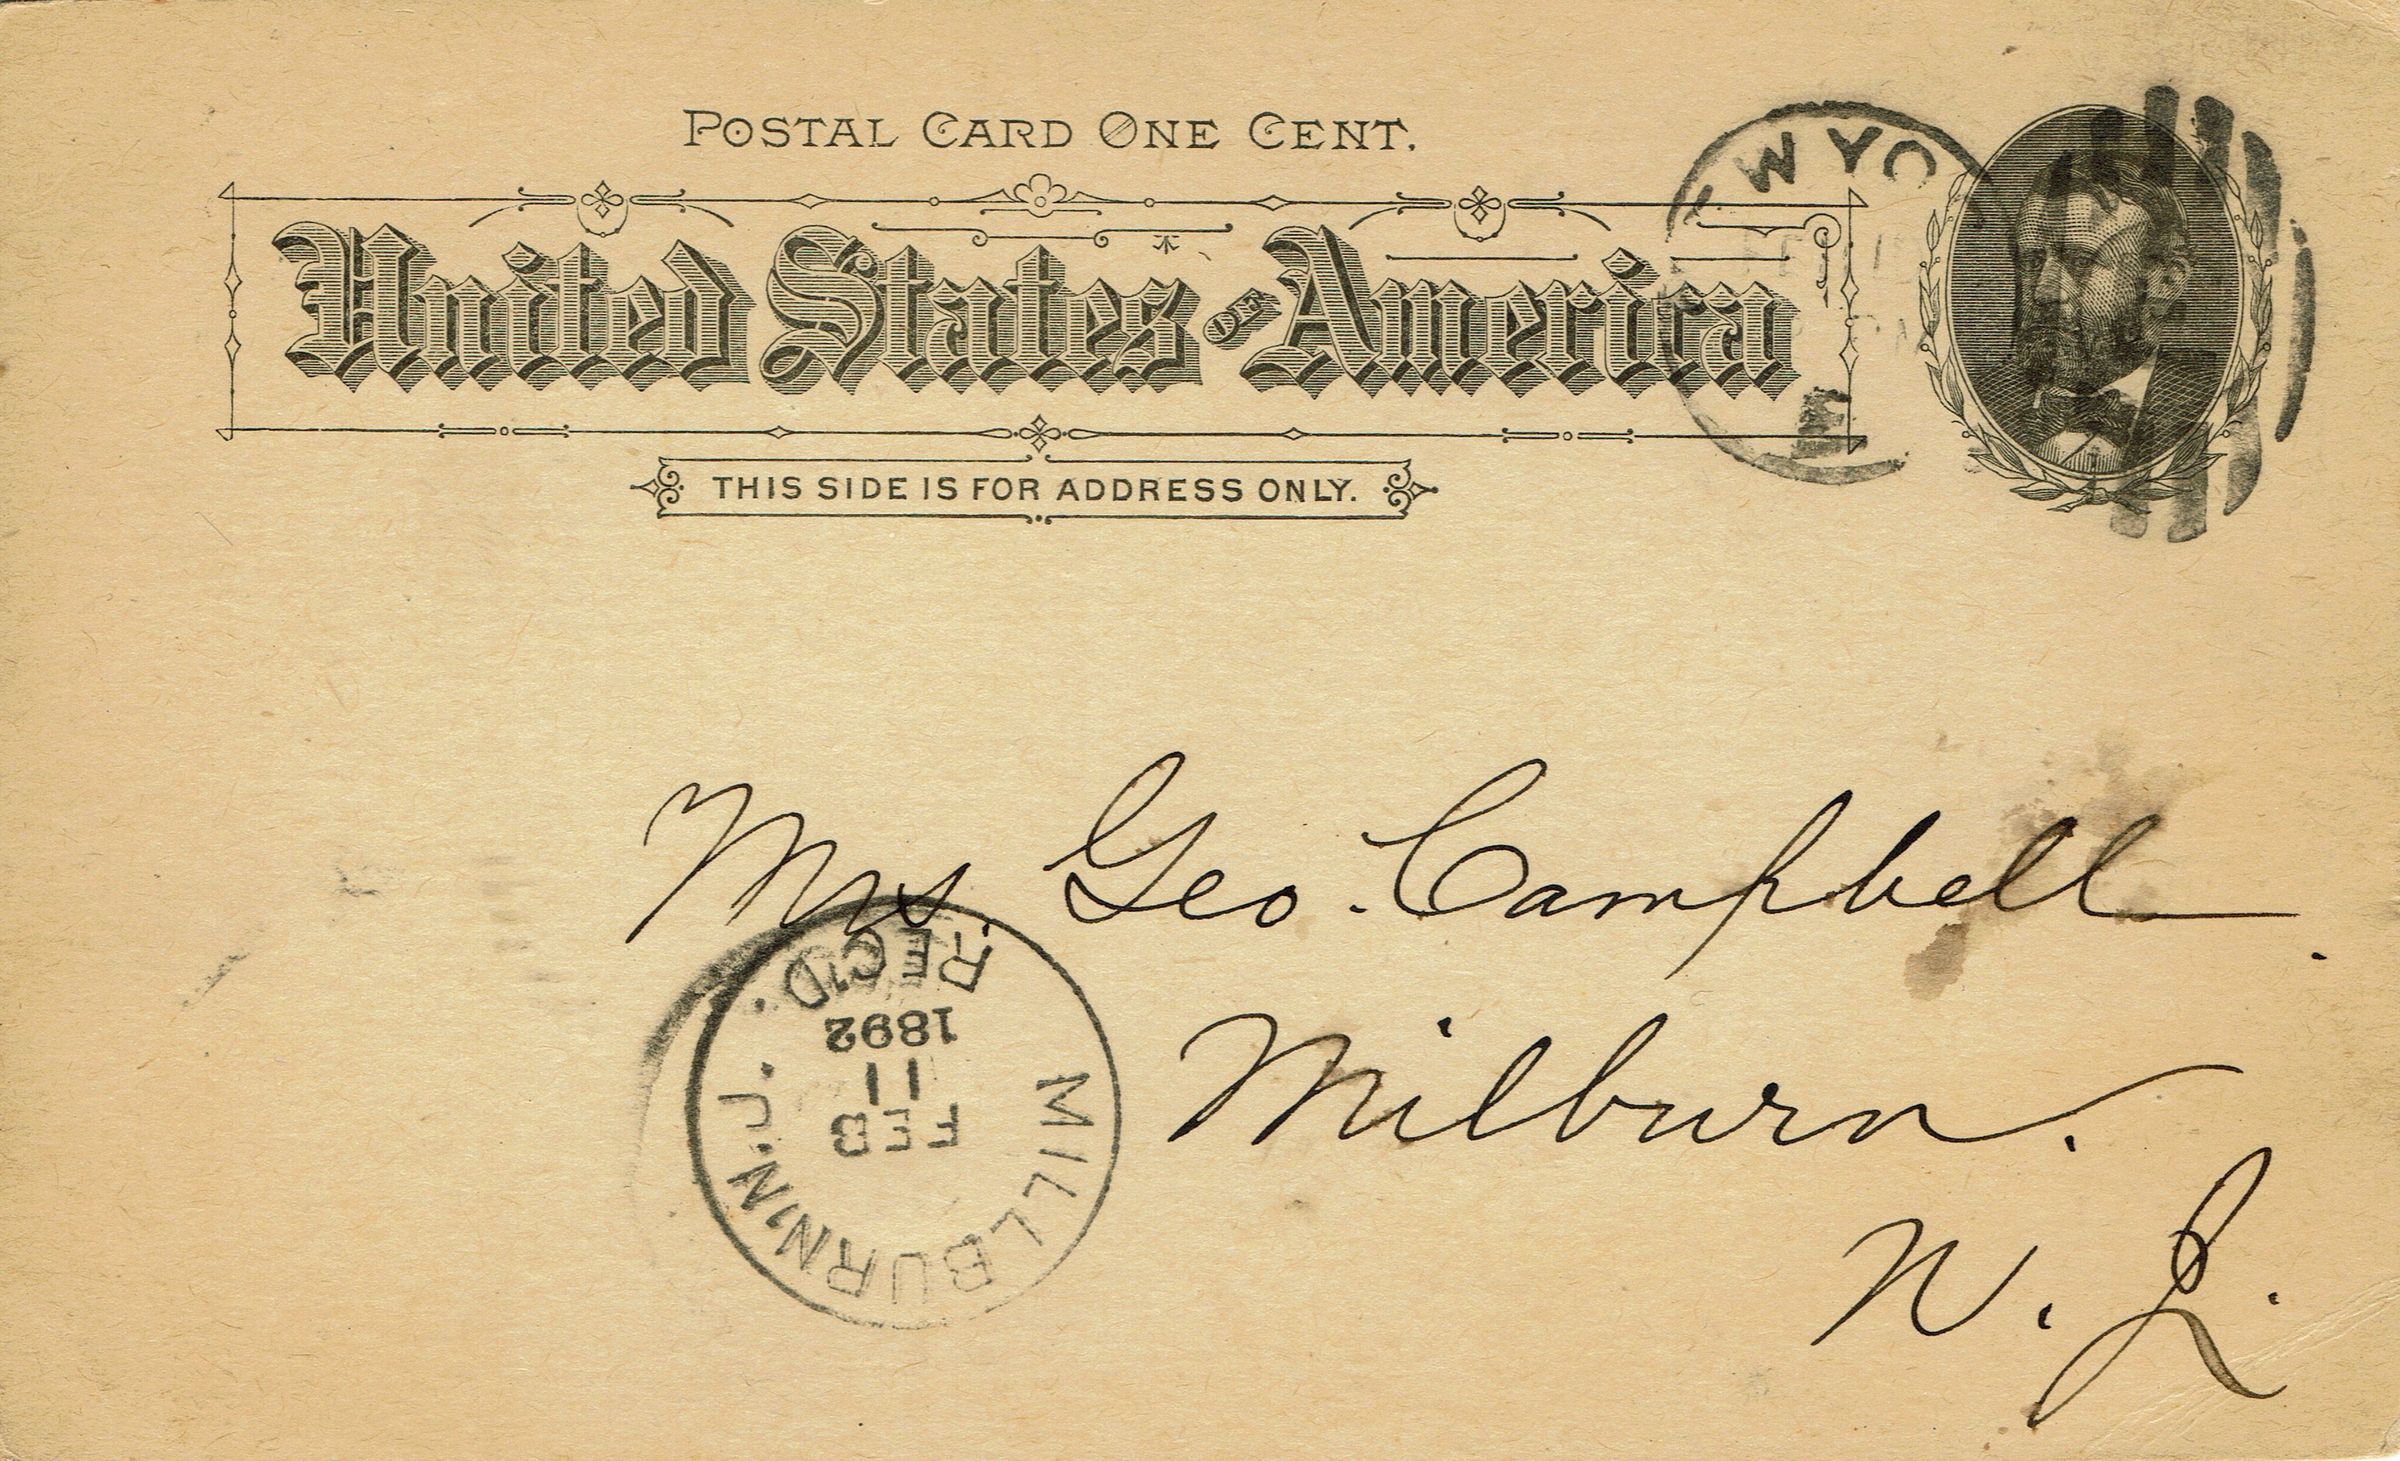 POSTAL CARD ONE CENT.
United States OF America
THIS SIDE IS FOR ADDRESS ONLY.
EW YO
Mrs. Geo. Campbell.
Milburn.
N. J.
MILLBURN N.J.
FEB
11
1892
REC'D.